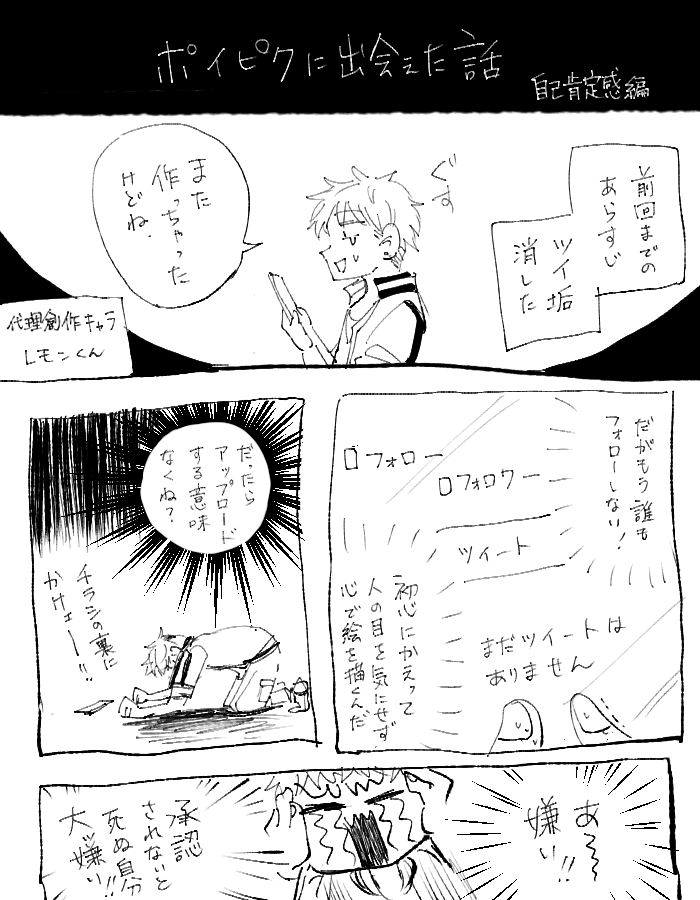 ポイピクに出会えた話
自己肯定感編
前回までの
あらすじ
ツイ垢
消した
ぐす
また
作っちゃった
けどね、
代理創作キャラ
レモンくん
だがもう誰も
フォローしない!
0フォロー
0フォロワー
ツイート
まだツイートは
ありません
初心にかえって
人の目を気にせず
心で絵を描くんだ
だったら
アップロード
する意味
なくね?
チラシの裏に
かけェー!!
あ〜〜
嫌い!!
承認
されないと
死ぬ自分
大ッ嫌い!!